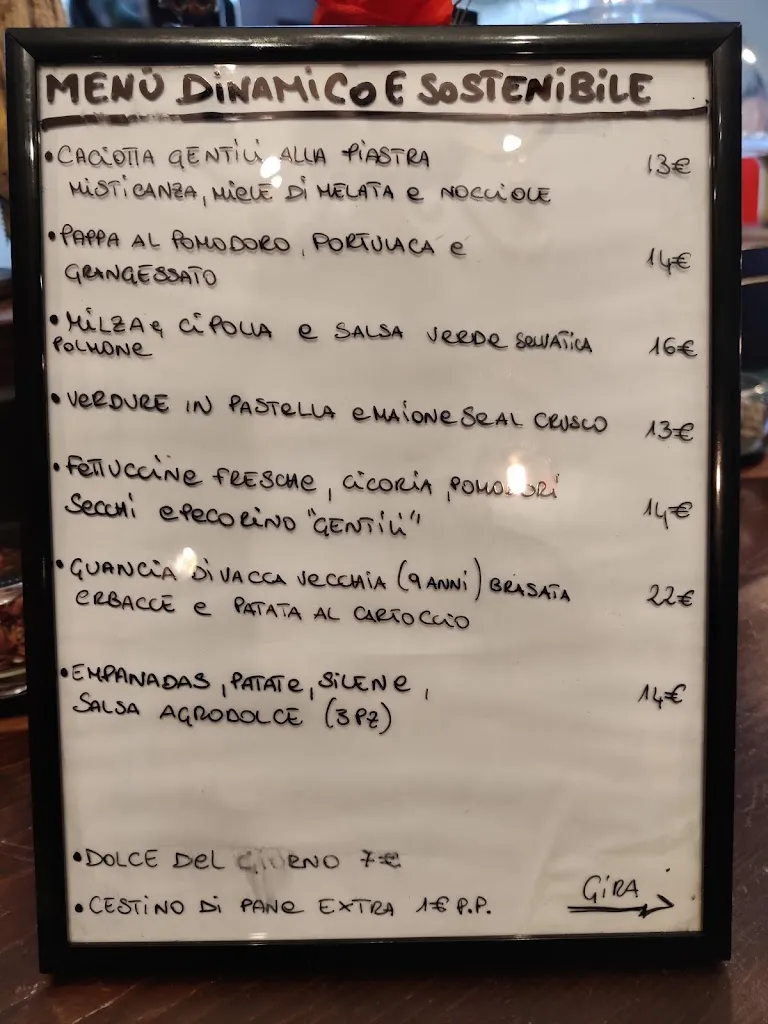 MENÙ DINAMICO E SOSTENIBILE
• CACIOTTA GENTILI ALLA PIASTRA 13€
MISTICANZA, MIELE DI MELATA e NOCCIOLE
• PAPPA AL POMODORO, PORTULACA e 14€
GRANGESSATO
• MILZA e CIPOLLA e SALSA VERDE SELVATICA 16€
POLMONE
• VERDURE IN PASTELLA e MAIONESE AL CRUSCO 13€
• FETTUCCINE FRESCHE, CICORIA, POMODORI
SECCHI e PECORINO "GENTILI" 14€
• GUANCIA DI VACCA VECCHIA (9 ANNI) BRASATA 22€
ERBACCE e PATATA AL CARTOCCIO
• EMPANADAS, PATATE, SILENE, 14€
SALSA AGRODOLCE (3 PZ)
• DOLCE DEL GIORNO 7€
• CESTINO DI PANE EXTRA 1€ P.P.
GIRA